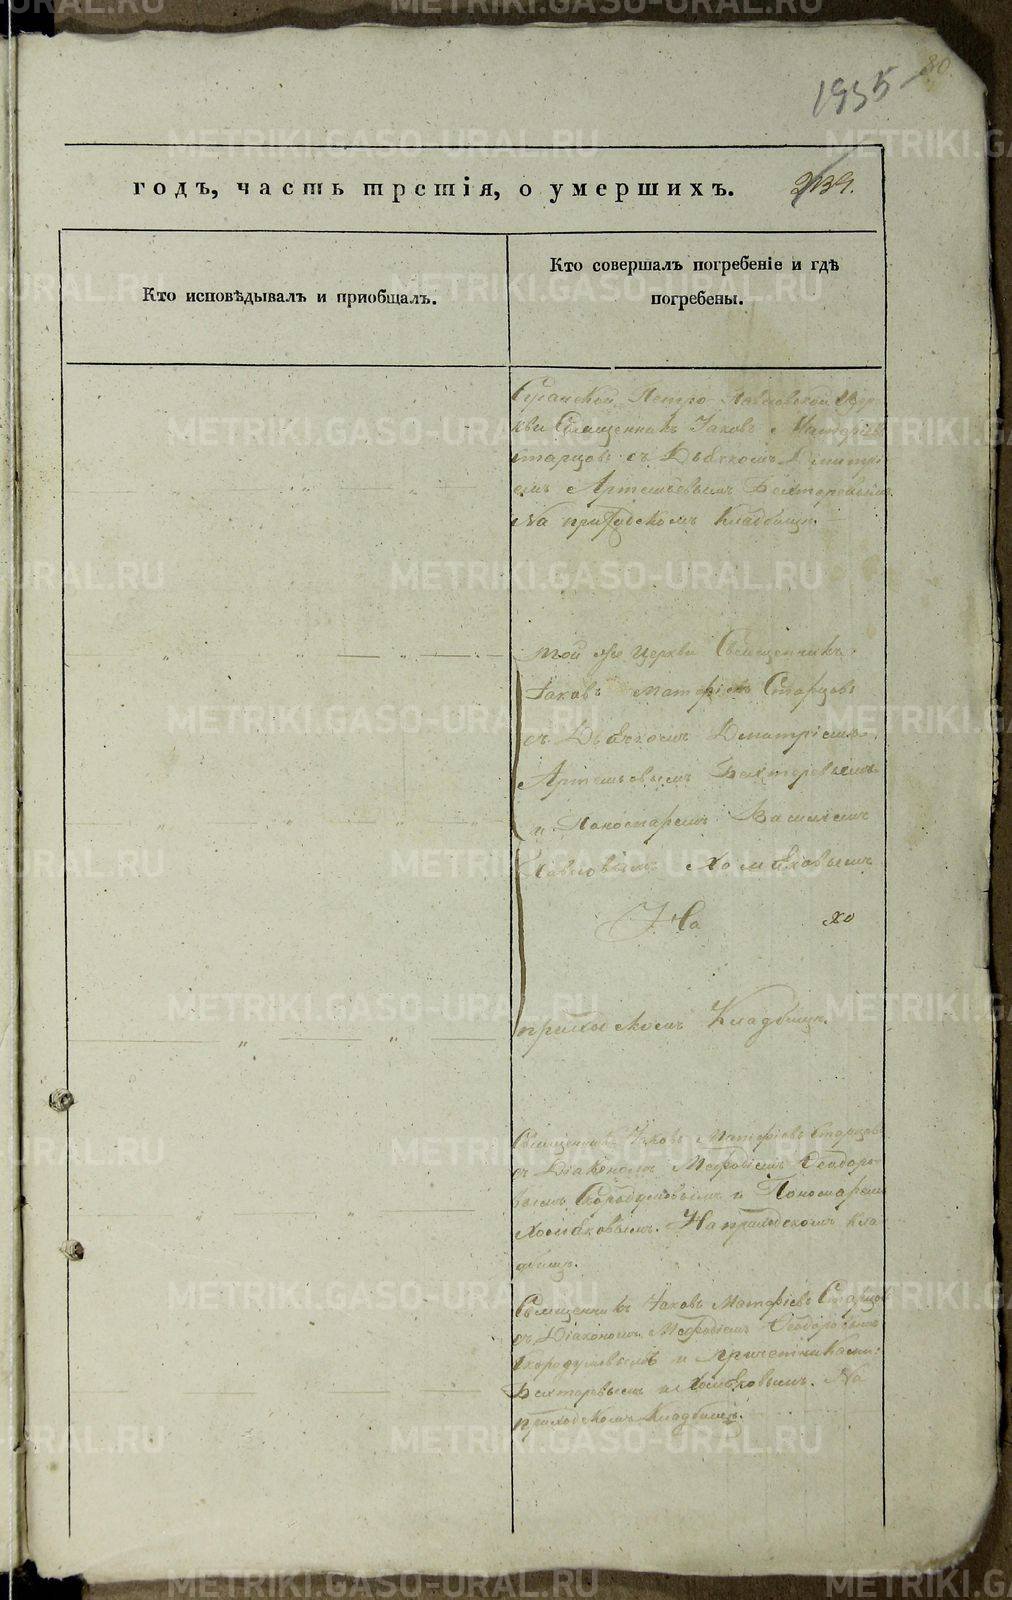 80.
1935
годъ, часть третія, о умершихъ.
239.
Кто исповѣдывалъ и приобщалъ.
Кто совершалъ погребеніе и гдѣ
погребены.
Петро Павловской Цер-
кви Священникъ Іаковъ Матфіевъ
Старцовъ съ Дьячкомъ Дмитрі-
емъ Артемьевымъ Бехтеревымъ
На приходскомъ кладбищѣ.
той же церкви Священникъ
Іаковъ Матфіевъ Старцовъ
съ Дьячкомъ Дмитріемъ
Артемьевымъ Бехтеревымъ
и Пономаремъ Василіемъ
Павловымъ Хомяковымъ
На хо
приходскомъ Кладбищѣ.
Священникъ Іаковъ Матфіевъ Старцовъ
съ Діакономъ Мефодіемъ Феодоро-
вымъ Скородумовымъ и Пономаремъ
Хомяковымъ. На приходскомъ кла-
дбищѣ.
Священникъ Іаковъ Матфіевъ Старцов
съ Діакономъ Мефодіемъ Феодоровымъ
Скородумовымъ и причетниками:
Бехтеревымъ и Хомяковымъ. На
приходскомъ Кладбищѣ.
METRIKI.GASO-URAL.RU